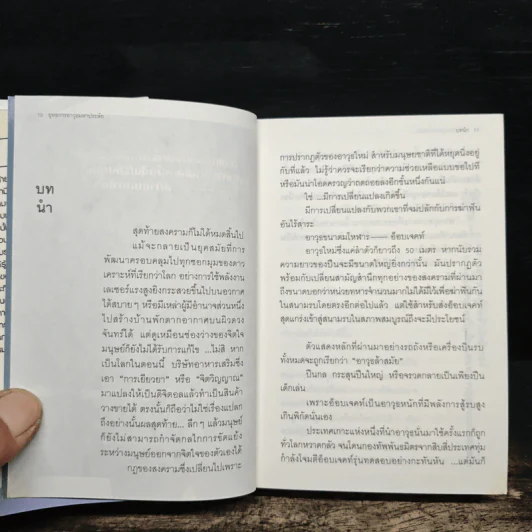 บทนำ
สุดท้ายสงครามก็ไม่ได้หมดสิ้นไป
แม้จะกลายเป็นยุคสมัยที่การ
พัฒนาครอบคลุมไปทุกซอกมุมของดาว
เคราะห์ที่เรียกว่าโลก อย่างการใช้พลังงาน
เลเซอร์แรงสูงยิงกระสวยขึ้นไปบนอวกาศ
ได้สบายๆ หรือมีเหล่าผู้มีอำนาจส่วนหนึ่ง
ไปสร้างบ้านพักตากอากาศบนผิวดวง
จันทร์ได้ แต่ดูเหมือนช่องว่างของจิตใจ
มนุษย์ก็ยังไม่ได้รับการแก้ไข ...ไม่สิ หาก
เป็นโลกในตอนนี้ บริษัทอาหารเสริมซึ่ง
เอา "การเยียวยา" หรือ "จิตวิญญาณ"
มาแปลงให้เป็นดิจิตอลแล้วทำเป็นสินค้า
วางขายได้ ตรงนั้นก็ถือว่าไม่ใช่เรื่องแปลก
ถึงอย่างนั้นผลสุดท้าย... ลึกๆ แล้วมนุษย์
ก็ยังไม่สามารถกำจัดกลไกการขัดแย้ง
ระหว่างมนุษย์ออกจากจิตใจของตัวเองได้
กฎของสงครามซึ่งเปลี่ยนไปเพราะ
บทนำ 11
การปรากฏตัวของอาวุธใหม่ สำหรับมนุษยชาติที่ได้หยุดนิ่งอยู่
กับที่แล้ว ไม่รู้ว่าควรจะเรียกว่าความช่วยเหลือแบบขอไปที
หรือมันน่าโอดครวญว่าถดถอยลงอีกขั้นหนึ่งกันแน่
ใช่ ...มีการเปลี่ยนแปลงเกิดขึ้น
มีการเปลี่ยนแปลงกับพวกเขาที่จมปลักกับการฆ่าฟัน
อันไร้สาระ
อาวุธขนาดมโหฬาร—— อ็อบเจคท์
อาวุธใหม่ซึ่งแค่ลำตัวก็ยาวถึง 50 เมตร หากนับรวม
ความยาวของปืนจะมีขนาดใหญ่ยิ่งกว่านั้น มันปรากฏตัว
พร้อมกับเปลี่ยนสามัญสำนึกทุกอย่างของสงครามที่ผ่านมา
ถึงขนาดบอกว่าหน่วยทหารจำนวนมากไม่ได้มีไว้เพื่อฆ่าฟันกัน
ในสนามรบโดยตรงอีกต่อไปแล้ว แต่ใช้สำหรับส่งอ็อบเจคท์
สุดแกร่งเข้าสู่สนามรบในสภาพสมบูรณ์ถึงจะมีประโยชน์
ตัวแสดงหลักที่ผ่านมาอย่างรถถังหรือเครื่องบินรบ
ทั้งหมดจะถูกเรียกว่า "อาวุธล้าสมัย"
ปืนกล กระสุนปืนใหญ่ หรือจรวดกลายเป็นเพียงปืน
เด็กเล่น
เพราะอ็อบเจคท์เป็นอาวุธหนักที่มีพลังการสู้รบสูง
เกินพิกัดนั่นเอง
ประเทศเกาะแห่งหนึ่งที่นำอาวุธนั่นมาใช้ครั้งแรกก็ถูก
ทั่วโลกหวาดกลัว จนโดนกองทัพพันธมิตรจากสิบสี่ประเทศทุ่ม
กำลังโจมตีอ็อบเจคท์รุ่นทดสอบอย่างกะทันหัน ...แต่มันก็